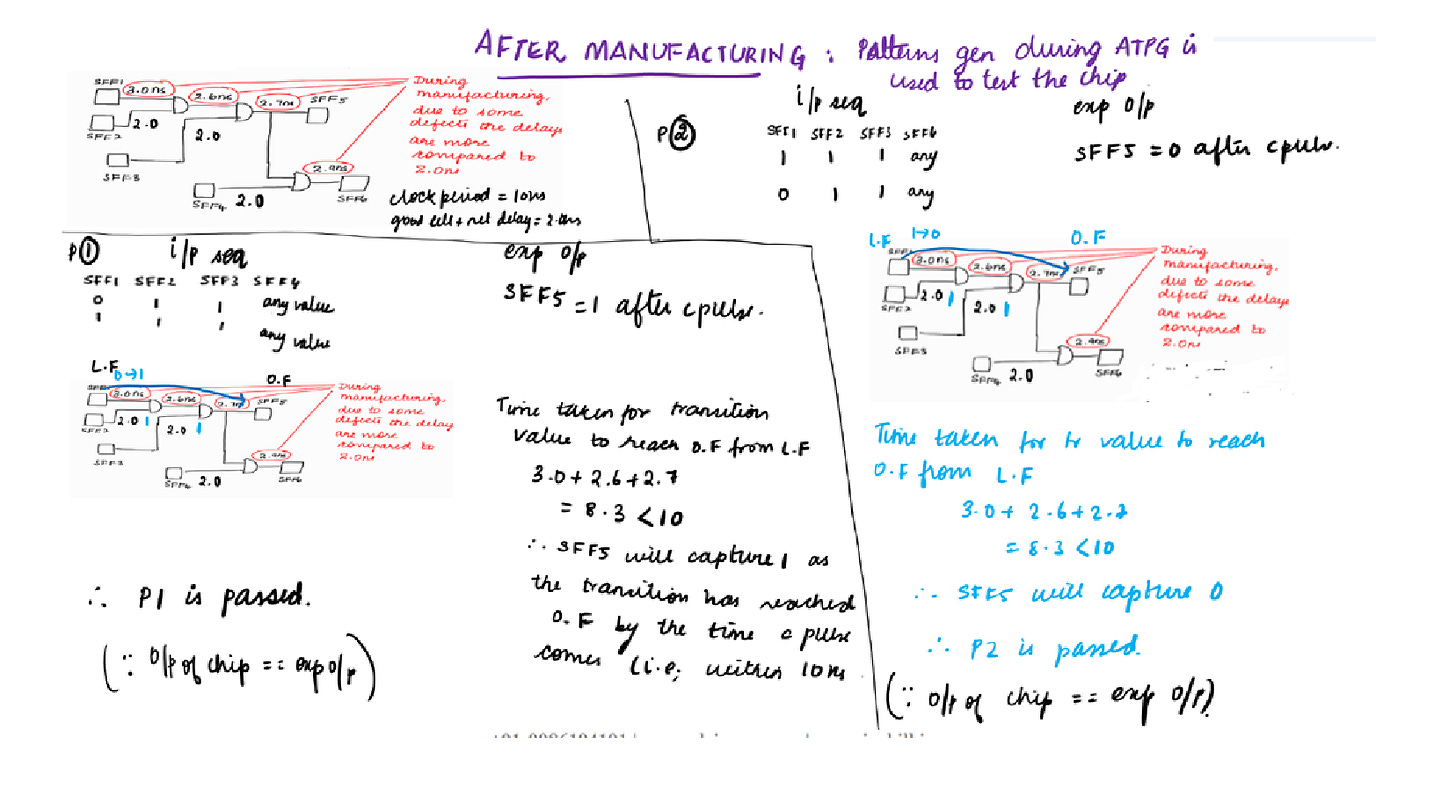 AFTER MANUFACTURING : Patterns gen during ATPG is
used to test the chip
SFF1 3.0ns 2.6ns 2.7ns SFF5
SFF2 2.0 2.0
SFF3
2.9ns
SFF4 2.0 SFF6
During
manufacturing,
due to some
defects the delays
are more
compared to
2.0ns
clock period = 10ns
good cell + net delay = 2.0ns
P② i/p seq exp o/p
SFF1 SFF2 SFF3 SFF4
1 1 1 any
0 1 1 any
SFF5 = 0 after cpulse.
P① i/p seq exp o/p
SFF1 SFF2 SFF3 SFF4
0 1 1 any value
1 1 1 any value
SFF5 = 1 after cpulse.
L.F 0→1 O.F
3.0ns 2.6ns 2.7ns SFF5
SFF2 2.0 1 2.0 1
SFF3
2.9ns
SFF4 2.0 SFF6
During
manufacturing,
due to some
defects the delay
are more
compared to
2.0ns
Time taken for transition
value to reach O.F from L.F
3.0 + 2.6 + 2.7
= 8.3 < 10
∴ SFF5 will capture 1 as
the transition has reached
O.F by the time c pulse
comes (i.e; within 10ns
∴ P1 is passed.
(∵ o/p of chip == exp o/p)
L.F 1→0 O.F
3.0ns 2.6ns 2.7ns SFF5
SFF2 2.0 1 2.0 1
SFF3
2.9ns
SFF4 2.0 SFF6
During
manufacturing,
due to some
defects the delays
are more
compared to
2.0ns
Time taken for tr value to reach
O.F from L.F
3.0 + 2.6 + 2.7
= 8.3 < 10
∴ SFF5 will capture 0
∴ P2 is passed.
(∵ o/p of chip == exp o/p).